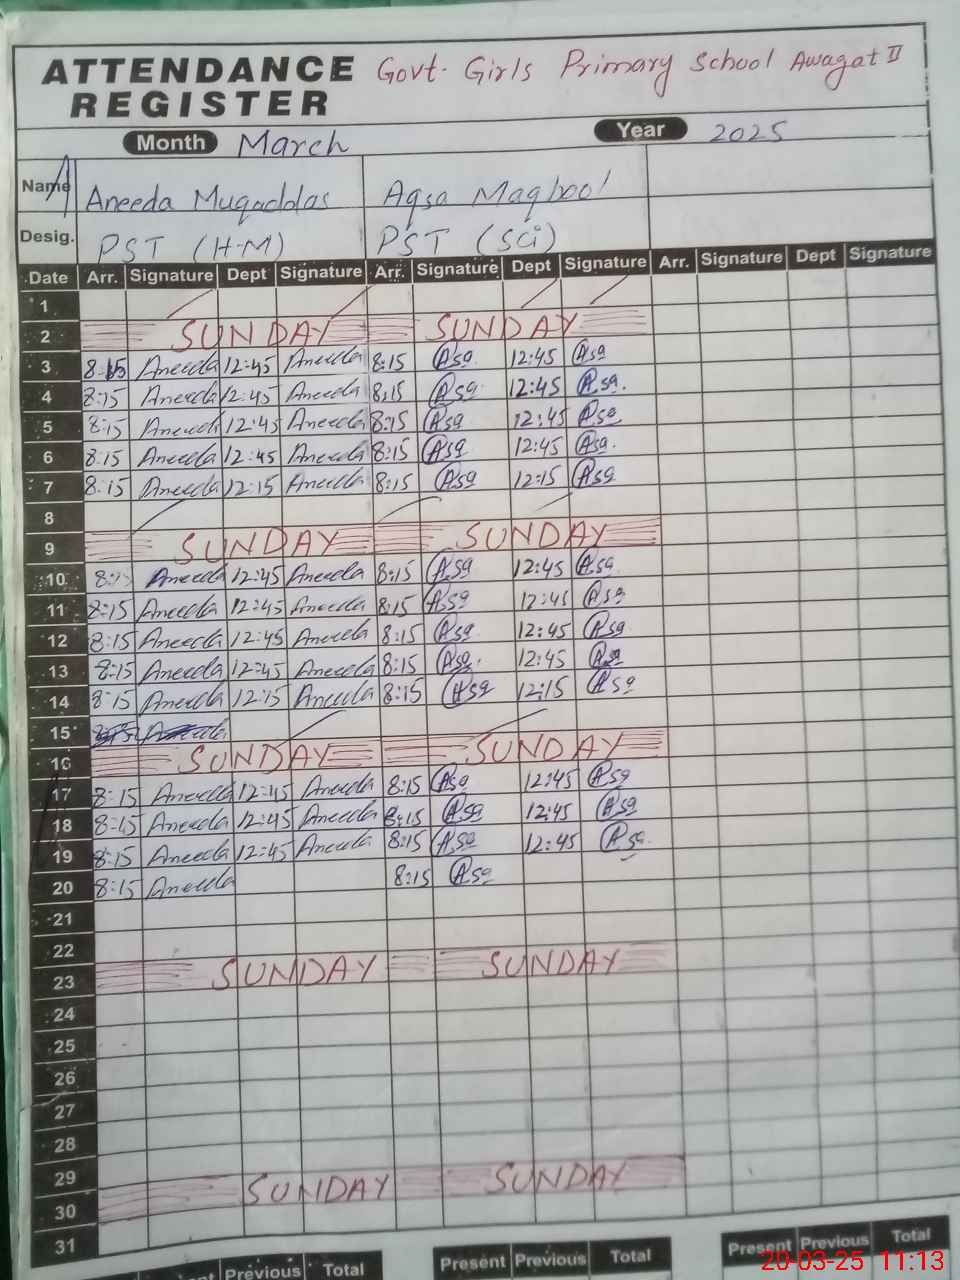 ATTENDANCE REGISTER Govt. Girls Primary School Awagat II
Month March Year 2025
Name Aneeda Muqaddas Aqsa Maqbool
Desig. PST (H-M) PST (Sci)
Date Arr. Signature Dept Signature Arr. Signature Dept Signature Arr. Signature Dept Signature
1
2 SUNDAY SUNDAY
3 8:15 Aneeda 12:45 Aneeda 8:15 Aqsa 12:45 Aqsa
4 8:15 Aneeda 12:45 Aneeda 8:15 Aqsa 12:45 Aqsa
5 8:15 Aneeda 12:45 Aneeda 8:15 Aqsa 12:45 Aqsa
6 8:15 Aneeda 12:45 Aneeda 8:15 Aqsa 12:45 Aqsa
7 8:15 Aneeda 12:15 Aneeda 8:15 Aqsa 12:15 Aqsa
8
9 SUNDAY SUNDAY
10 Aneeda 12:45 Aneeda 8:15 Aqsa 12:45 Aqsa
11 8:15 Aneeda 12:45 Aneeda 8:15 Aqsa 12:45 Aqsa
12 8:15 Aneeda 12:45 Aneeda 8:15 Aqsa 12:45 Aqsa
13 8:15 Aneeda 12:45 Aneeda 8:15 Aqsa 12:45 Aqsa
14 8:15 Aneeda 12:15 Aneeda 8:15 Aqsa 12:15 Aqsa
15
16 SUNDAY SUNDAY
17 8:15 Aneeda 12:45 Aneeda 8:15 Aqsa 12:45 Aqsa
18 8:15 Aneeda 12:45 Aneeda 8:15 Aqsa 12:45 Aqsa
19 8:15 Aneeda 12:45 Aneeda 8:15 Aqsa 12:45 Aqsa
20 8:15 Aneeda 8:15 Aqsa
21
22
23 SUNDAY SUNDAY
24
25
26
27
28
29
30 SUNDAY SUNDAY
31
Previous Total Present Previous Total Present Previous Total
20-03-25 11:13